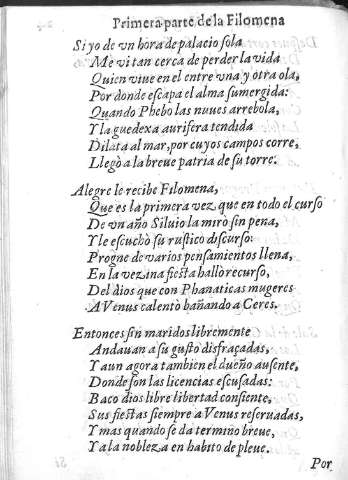 Primera parte de la Filomena
Si yo de vn hora de palacio sola
Me vi tan cerca de perder la vida
Quien viue en el entre vna y otra ola,
Por donde escapa el alma sumergida:
Quando Phebo las nuues arrebola,
Y la guedexa aurifera tendida
Dilata al mar, por cuyos campos corre,
Llegò a la breue patria de su torre.
Alegre le recibe Filomena,
Que es la primera vez que en todo el curso
De vn año Siluio la mirò sin pena,
Y le escuchò su rustico discurso:
Progne de varios pensamientos llena,
En la vezina fiesta hallò recurso,
Del dios que con Phanaticas mugeres
A Venus calentò bañando a Ceres.
Entonces sin maridos libremente
Andauan a su gusto disfraçadas,
Y aun agora tambien el dueño ausente,
Donde son las licencias escusadas:
Baco dios libre libertad consiente,
Sus fiestas siempre a Venus reseruadas,
Y mas quando se da termino breue,
Y a la nobleza en habito de pleue.
Por